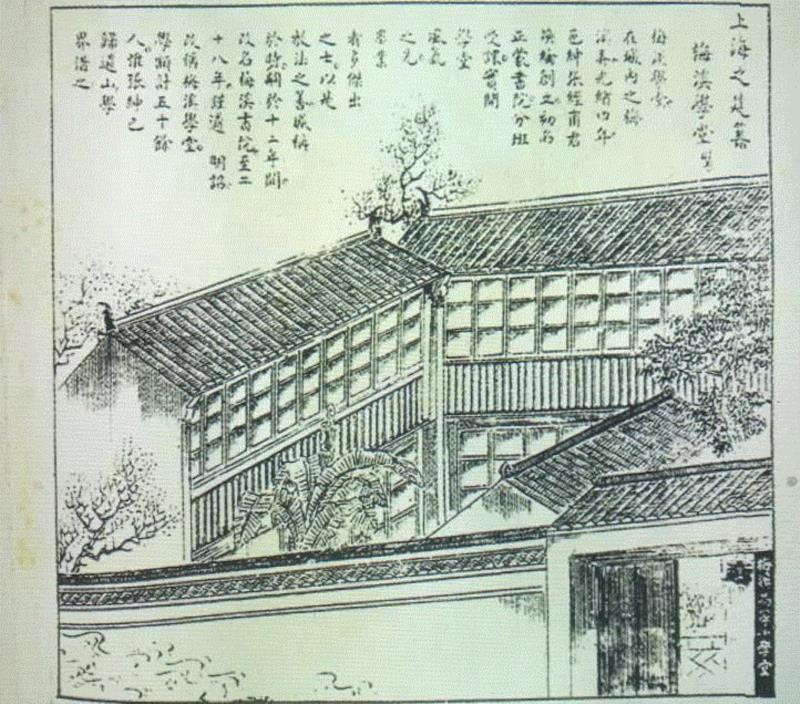 上海之建築
梅溪學堂
梅溪學堂。
在城內之梅
溪弄光緒四年
邑紳張經甫君
煥綸創立初名
正蒙書院分班
受課實開
學堂
風氣
之先
畢業
者多傑出
之士。以是
教法之善咸稱
於時嗣於十二年間
改名梅溪書院。至二
十八年。謹遵 明詔
改稱梅溪學堂。
學額計五十餘
人。惟張紳已
歸道山。學
界惜之
學堂